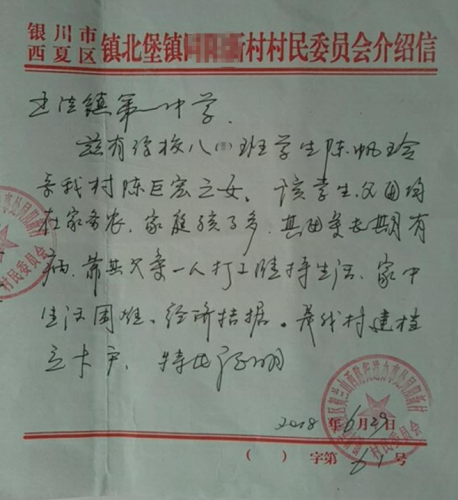 银川市
西夏区镇北堡镇新村村民委员会介绍信
镇第一中学
兹有你校八班学生陈帆玲
系我村陈巨宏之女。该学生父母均
在家务农，家庭孩子多，其母亲长期有
病，靠其父亲一人打工维持生活，家中
生活困难，经济拮据。是我村建档
立卡户，特此证明
2018年6月29日
( ) 字第61号
村民委员会
村民委员会